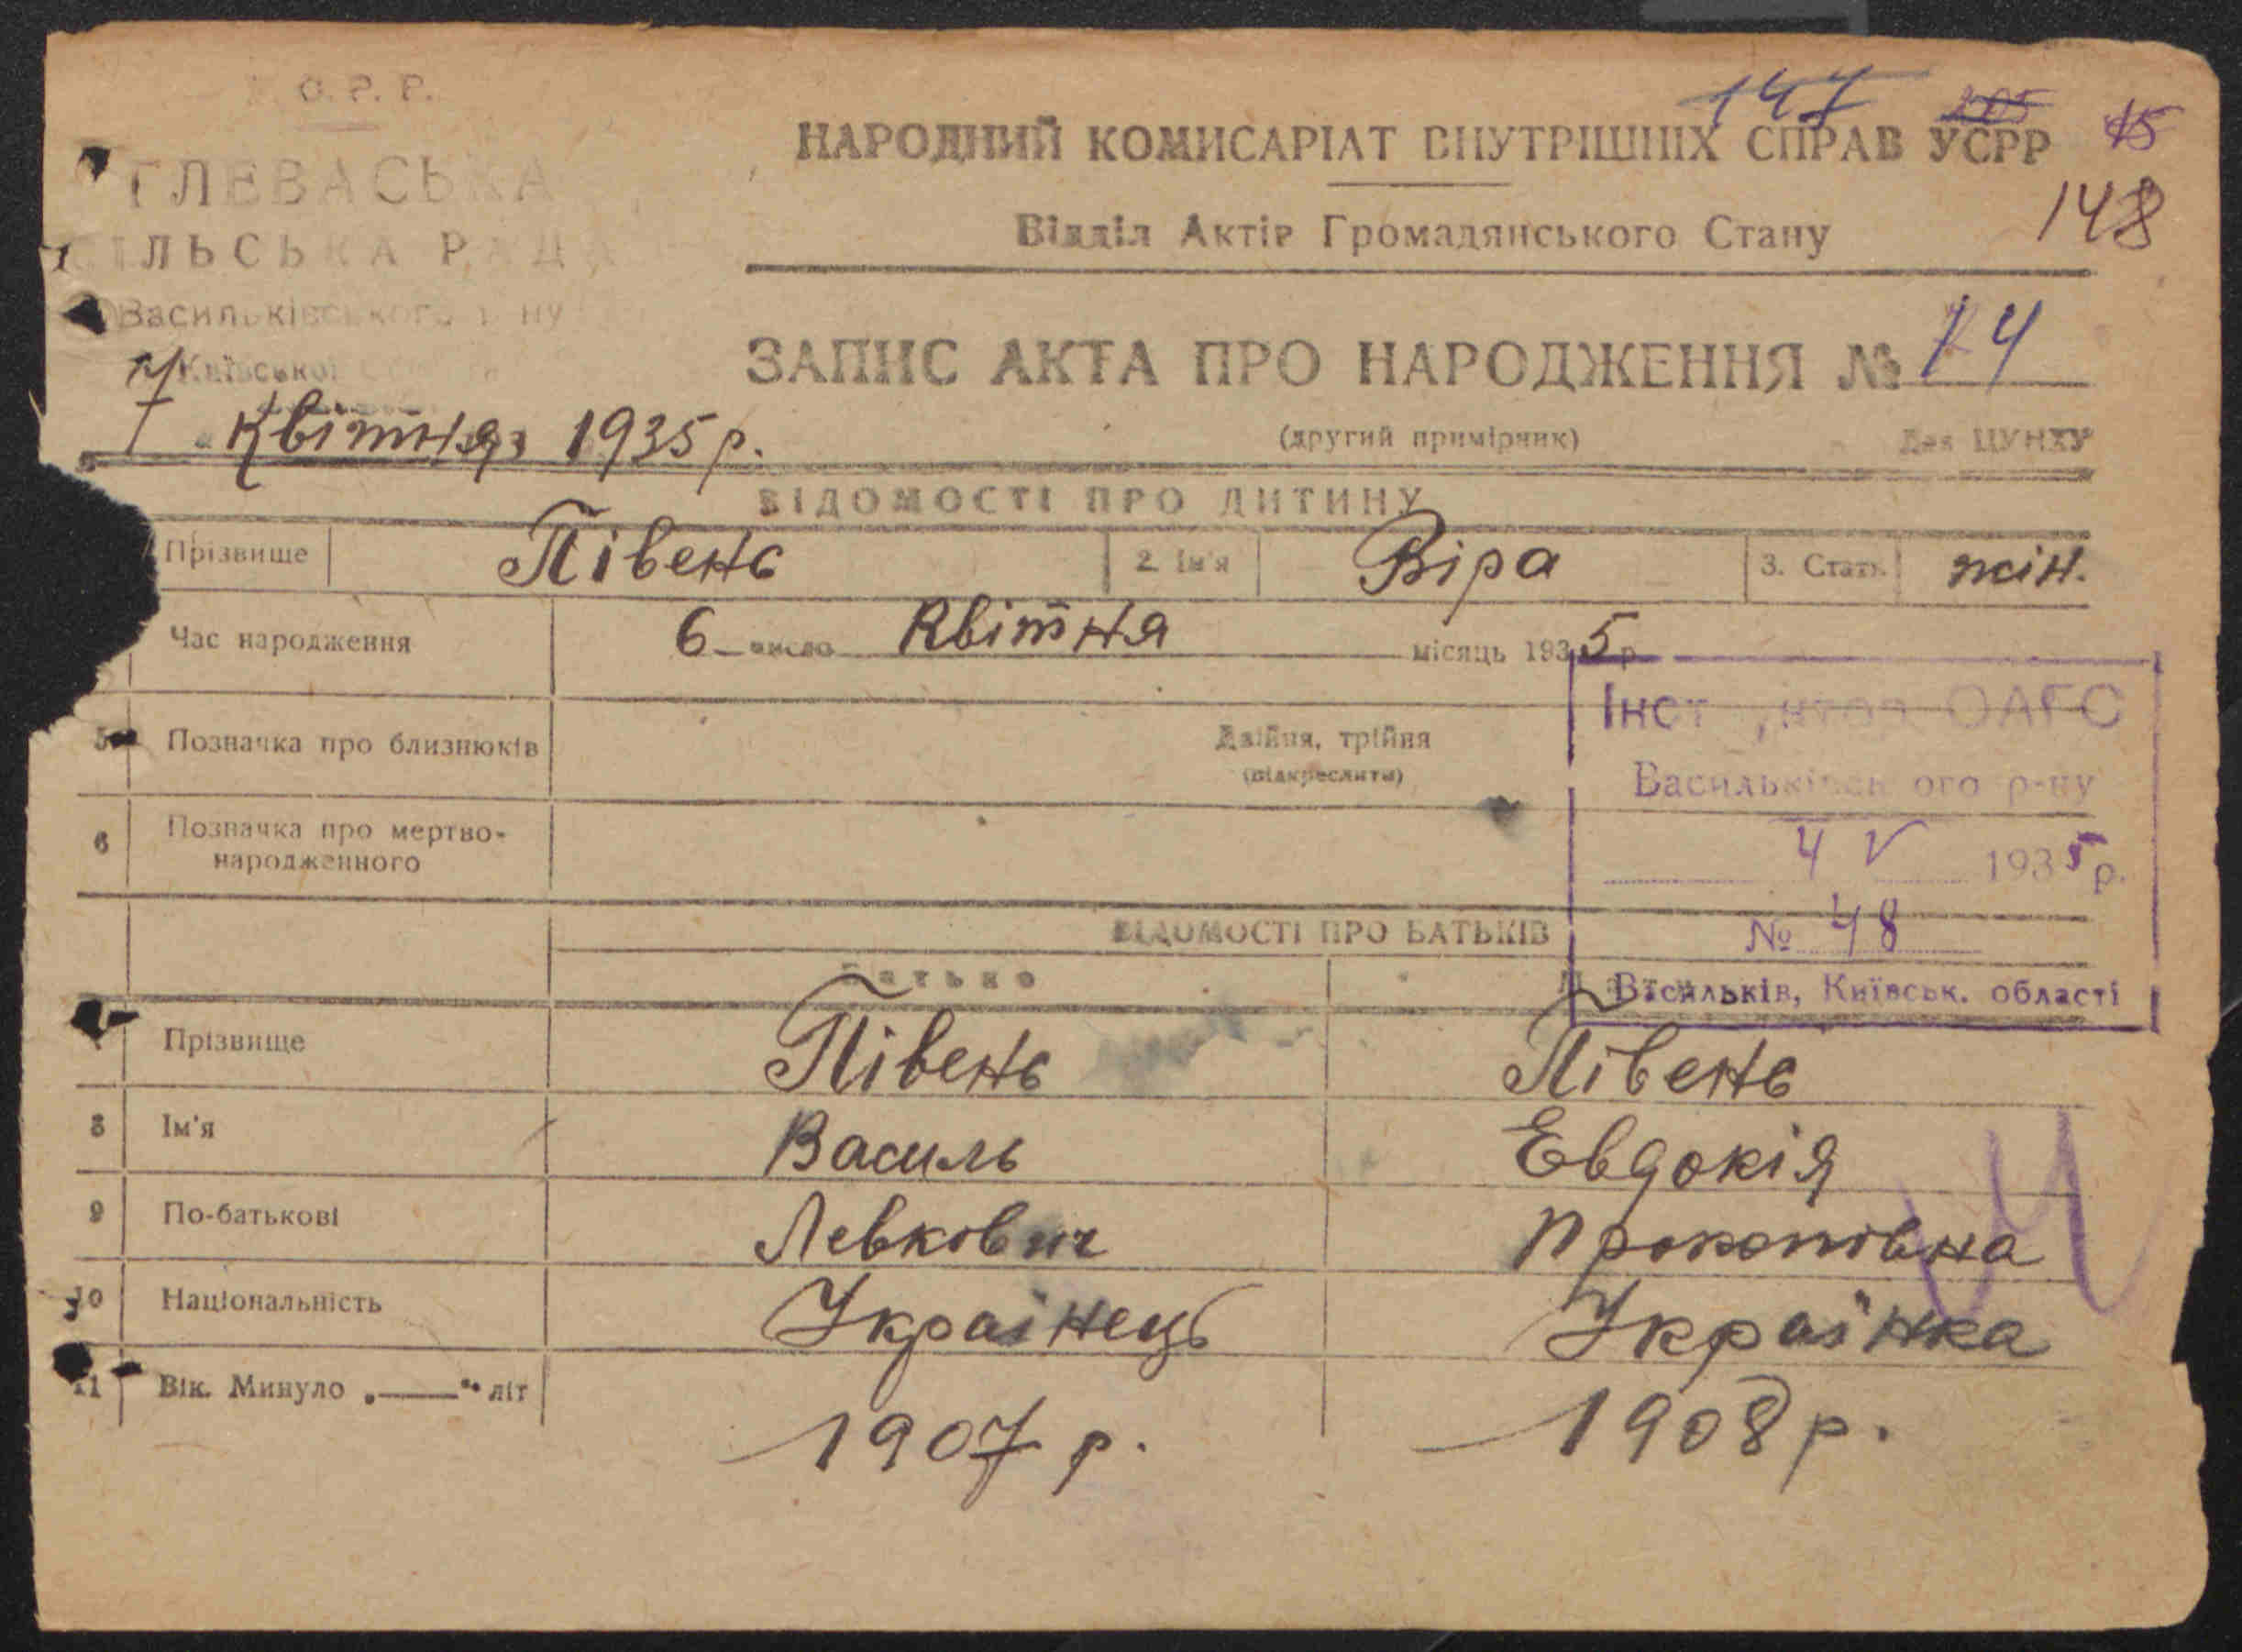 С. Р. Р.
ГЛЕВАСЬКА
СІЛЬСЬКА РАДА
Васильківського р-ну
Київської
7 Квітня 1935 р.
147 205 15
148
НАРОДНИЙ КОМИСАРІАТ ВНУТРІШНІХ СПРАВ УСРР
Відділ Актів Громадянського Стану
ЗАПИС АКТА ПРО НАРОДЖЕННЯ № 14
(другий примірник) Для ЦУНХУ
ВІДОМОСТІ ПРО ДИТИНУ
Прізвище Півень 2. Ім'я Віра 3. Стать жін.
Час народження 6 число Квітня місяць 1935 р.
5 Позначка про близнюків Двійня, трійня
(підкреслити)
6 Позначка про мертво-
народженного
Інспектор ОАГС
Васильківського р-ну
4 V 1935 р.
№ 48
Васильків, Київськ. області
ВІДОМОСТІ ПРО БАТЬКІВ
Батько
Прізвище Півень Півень
8 Ім'я Василь Евдокія
9 По-батькові Левкович Прокопівна
10 Національність Українець Українка
11 Вік. Минуло „——“ літ 1907 р. 1908 р.